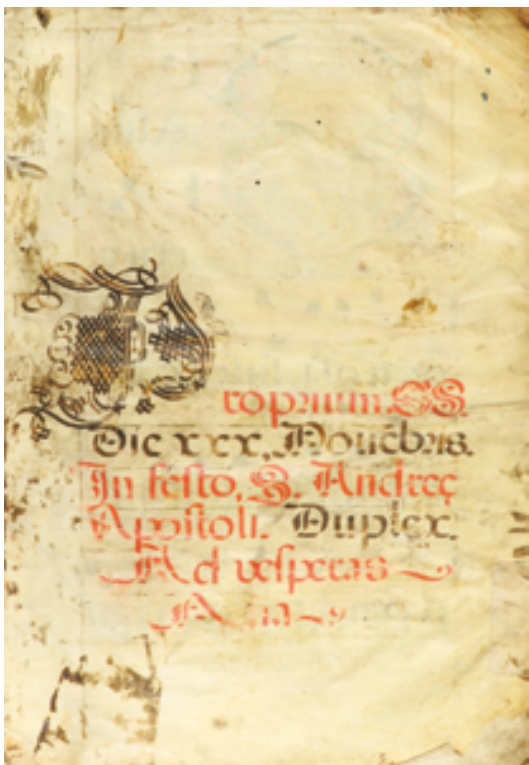 Proprium. SS.
Die xxx. Nouēbris.
In festo. S. Andreę
Apostoli. Duplex.
Ad vesperas